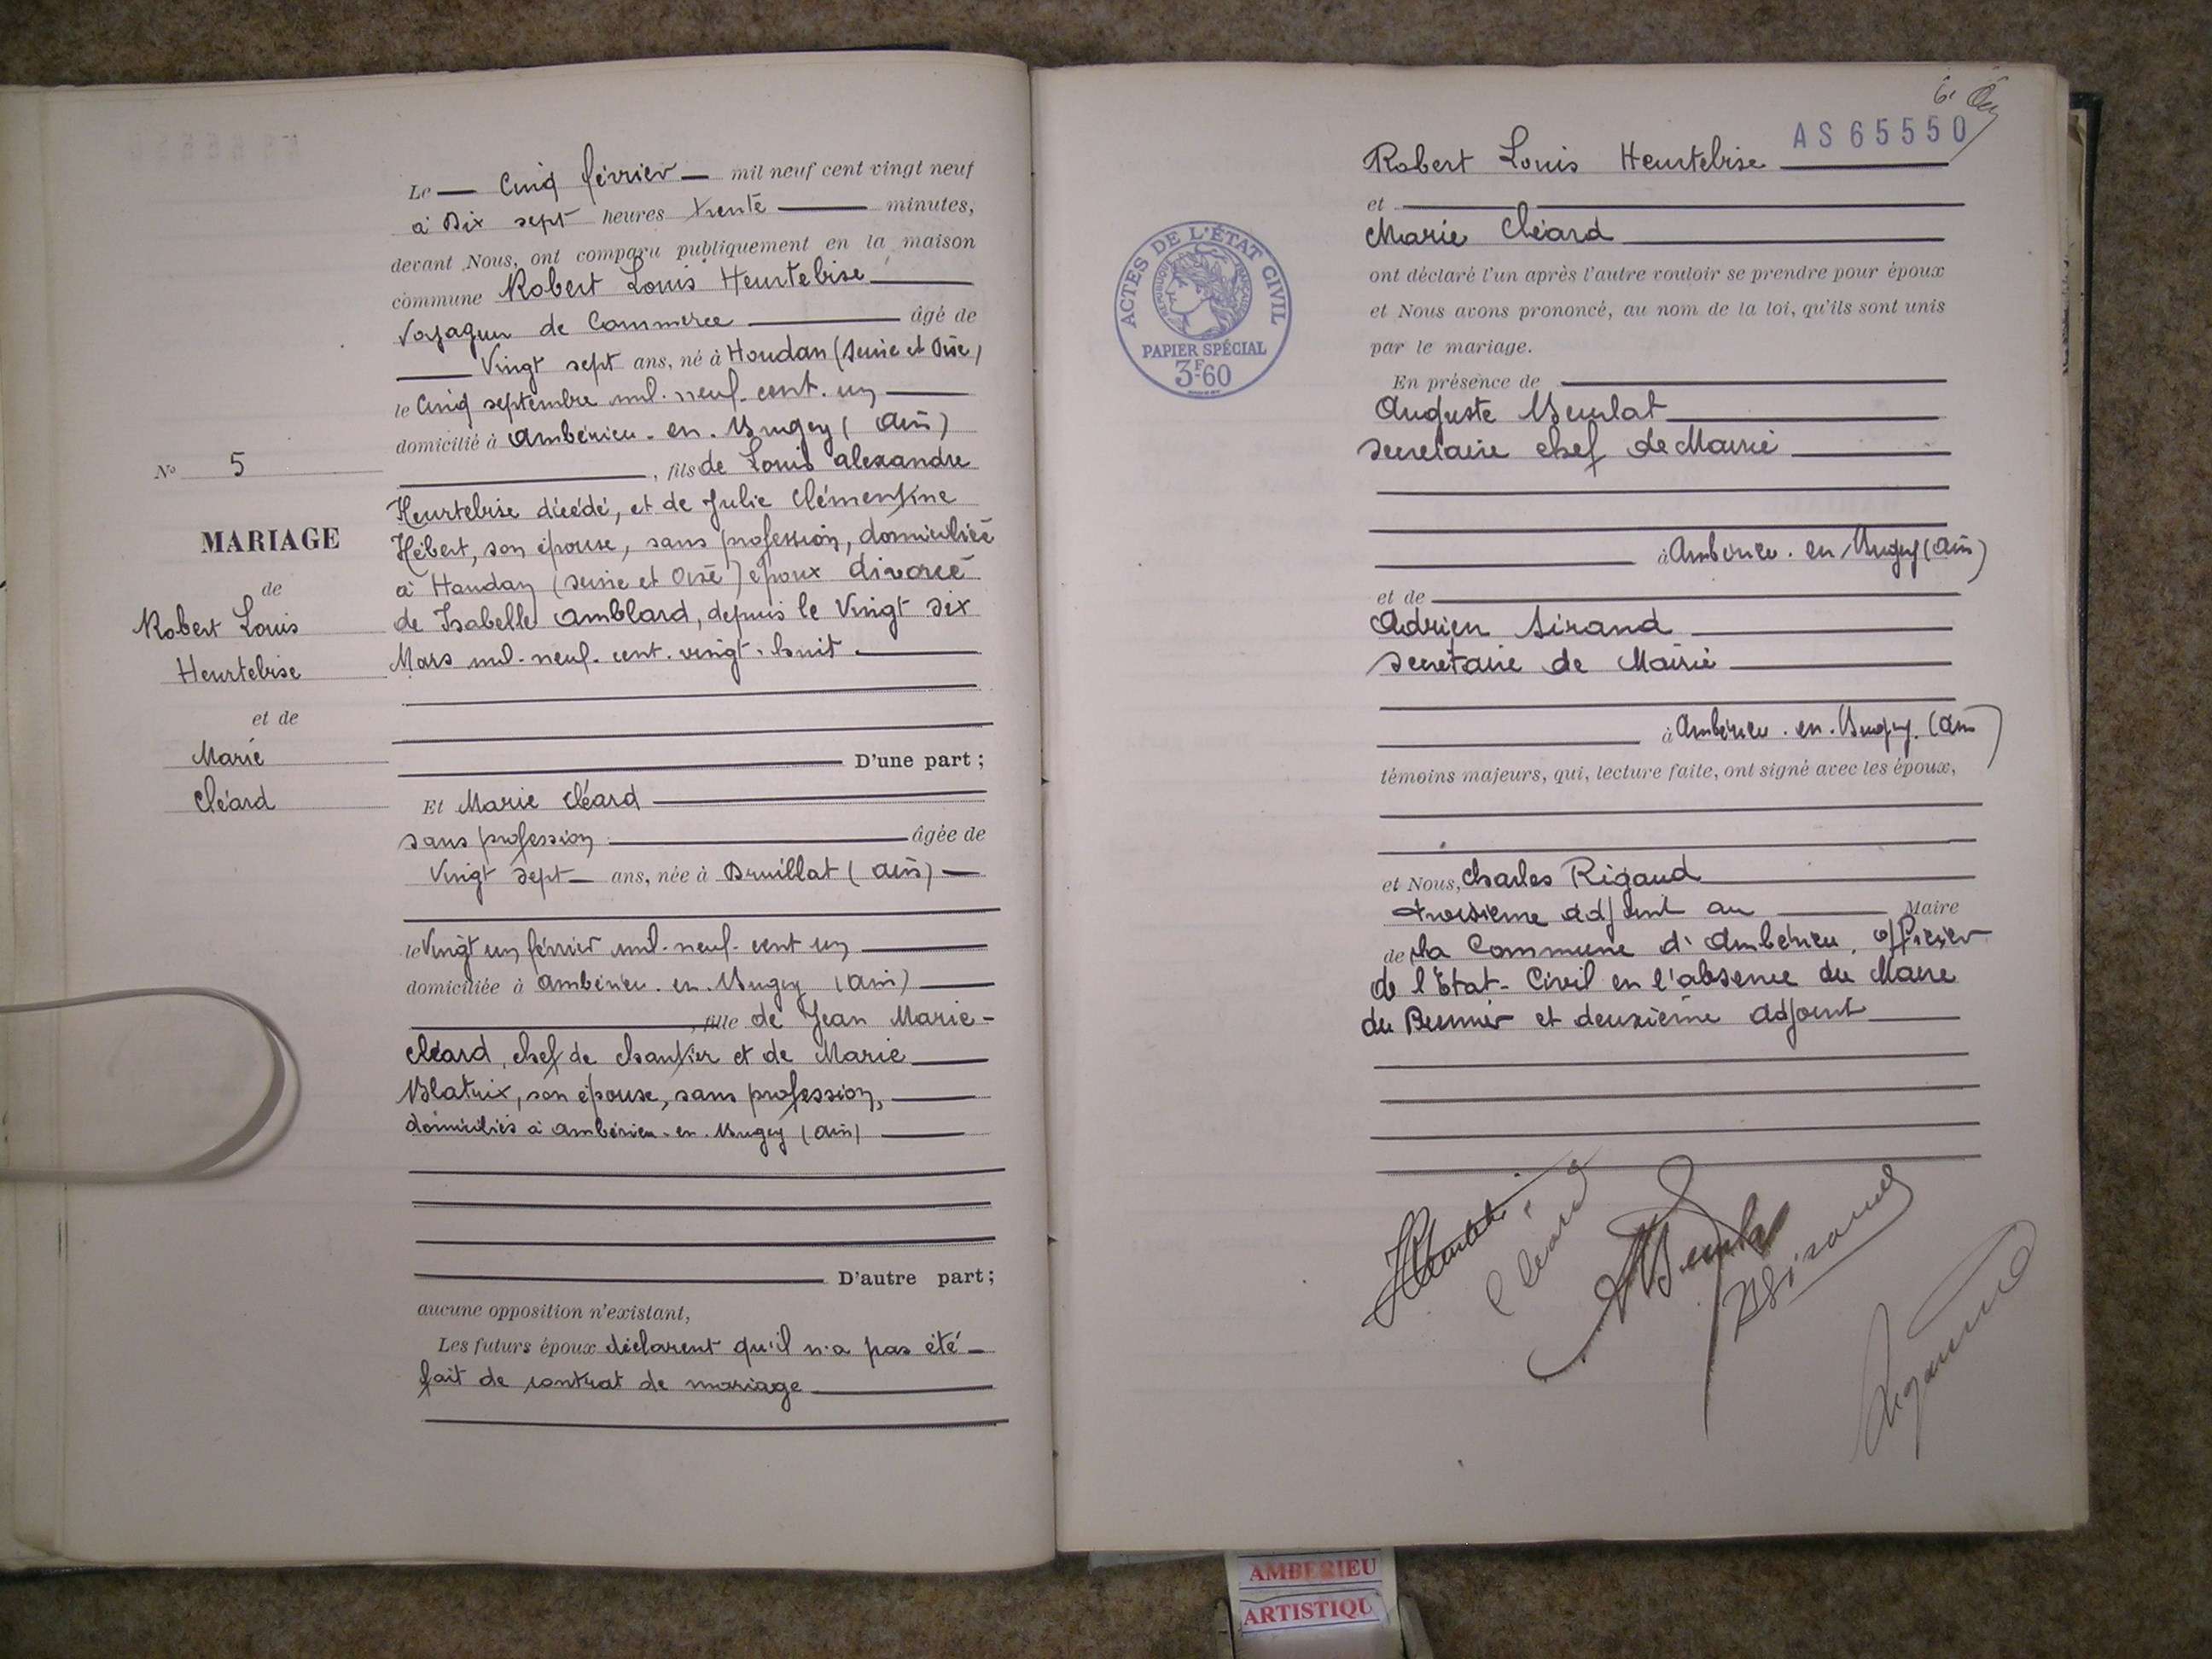 Le — Cinq février — mil neuf cent vingt neuf
à Dix sept heures trente minutes,
devant Nous, ont comparu publiquement en la maison
commune Robert Louis Heurtebise
Voyageur de Commerce âgé de
Vingt sept ans, né à Houdan (Seine et Oise)
le Cinq septembre mil. neuf. cent. un
domicilié à Ambérieu. en. Bugey (Ain)
, fils de Louis Alexandre
Heurtebise décédé, et de Julie Clémentine
Hébert, son épouse, sans profession, domiciliée
à Houdan (Seine et Oise) époux divorcé
de Isabelle Amblard, depuis le Vingt Six
Mars mil. neuf. cent. vingt. huit.
D'une part ;
Et Marie Cléard
sans profession âgée de
Vingt Sept — ans, née à Druillat (Ain) —
le Vingt un février mil. neuf. cent un
domiciliée à Ambérieu. en. Bugey (Ain)
, fille de Jean Marie -
Cléard, chef de chantier et de Marie
Blatrix, son épouse, sans profession,
domiciliés à Ambérieu. en. Bugey (Ain)
D'autre part ;
aucune opposition n'existant,
Les futurs époux déclarent qu'il n'a pas été —
fait de contrat de mariage
No 5
MARIAGE
de
Robert Louis
Heurtebise
et de
Marie
Cléard
AS 65550
Robert Louis Heurtebise
et
Marie Cléard
ont déclaré l'un après l'autre vouloir se prendre pour époux
et Nous avons prononcé, au nom de la loi, qu'ils sont unis
par le mariage.
En présence de
Auguste Beulat
Secrétaire chef de Mairie
à Ambérieu. en Bugey (Ain)
et de
Adrien Sirand
Secrétaire de Mairie
à Ambérieu. en. Bugey. (Ain)
témoins majeurs, qui, lecture faite, ont signé avec les époux,
et Nous, Charles Rigaud
troisième adjoint au Maire
de la Commune d'Ambérieu. officier
de l'Etat-Civil en l'absence du Maire
du Premier et deuxième Adjoint
ACTES DE L'ÉTAT CIVIL
RÉPUBLIQUE FRANÇAISE
PAPIER SPÉCIAL
3F60
Cléard
Rigaud
AMBERIEU
ARTISTIQU